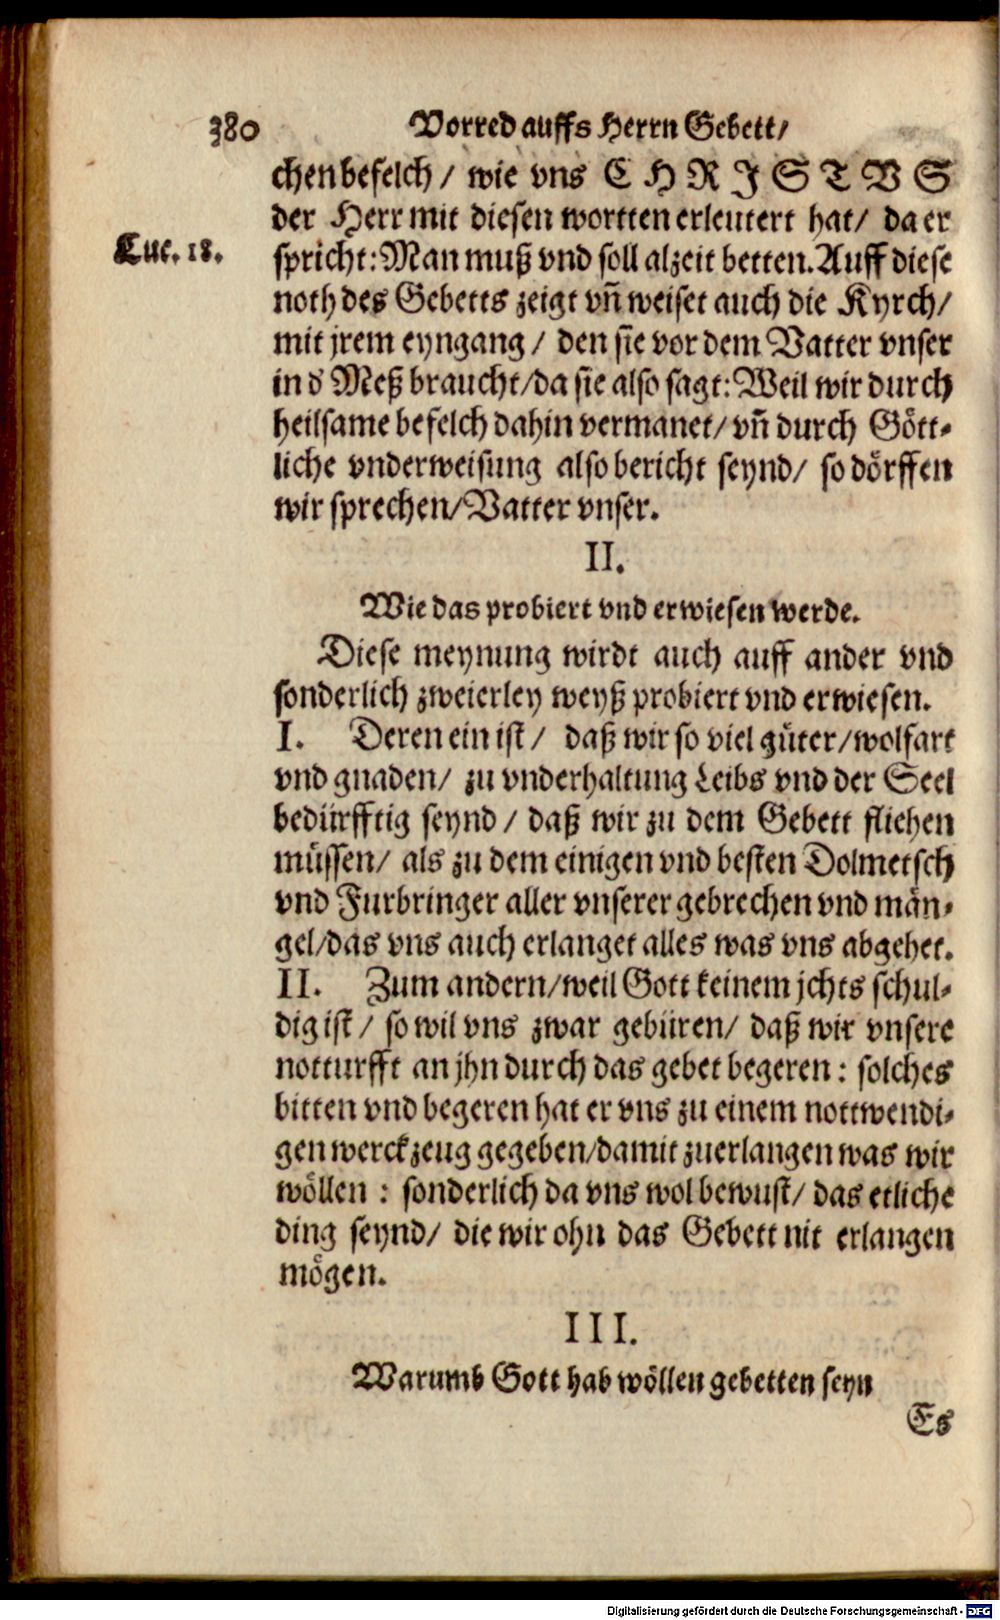 380 Vorred auffs Herrn Gebett/
chen befelch / wie vns CHRISTVS
der Herr mit diesen wortten erleutert hat/ da er
Luc. 18.
spricht: Man muß vnd soll alzeit betten. Auff diese
noth des Gebetts zeigt vñ weiset auch die Kyrch/
mit jrem eyngang / den sie vor dem Vatter vnser
in d' Meß braucht/da sie also sagt: Weil wir durch
heilsame befelch dahin vermanet/ vñ durch Gött-
liche vnderweisung also bericht seynd/ so dörffen
wir sprechen/Vatter vnser.
II.
Wie das probiert vnd erwiesen werde.
Diese meynung wirdt auch auff ander vnd
sonderlich zweierley weyß probiert vnd erwiesen.
I. Deren ein ist / daß wir so viel güter/wolfart
vnd gnaden/ zu vnderhaltung Leibs vnd der Seel
bedürfftig seynd / daß wir zu dem Gebett fliehen
müssen/ als zu dem einigen vnd besten Dolmetsch
vnd Furbringer aller vnserer gebrechen vnd män-
gel/das vns auch erlanget alles was vns abgehet.
II. Zum andern/weil Gott keinem jchts schul-
dig ist / so wil vns zwar gebüren/ daß wir vnsere
notturfft an jhn durch das gebet begeren : solches
bitten vnd begeren hat er vns zu einem nottwendi-
gen werckzeug gegeben/damit zuerlangen was wir
wöllen : sonderlich da vns wol bewust/ das etliche
ding seynd/ die wir ohn das Gebett nit erlangen
mögen.
III.
Warumb Gott hab wöllen gebetten seyn
Es
Digitalisierung gefördert durch die Deutsche Forschungsgemeinschaft - DFG